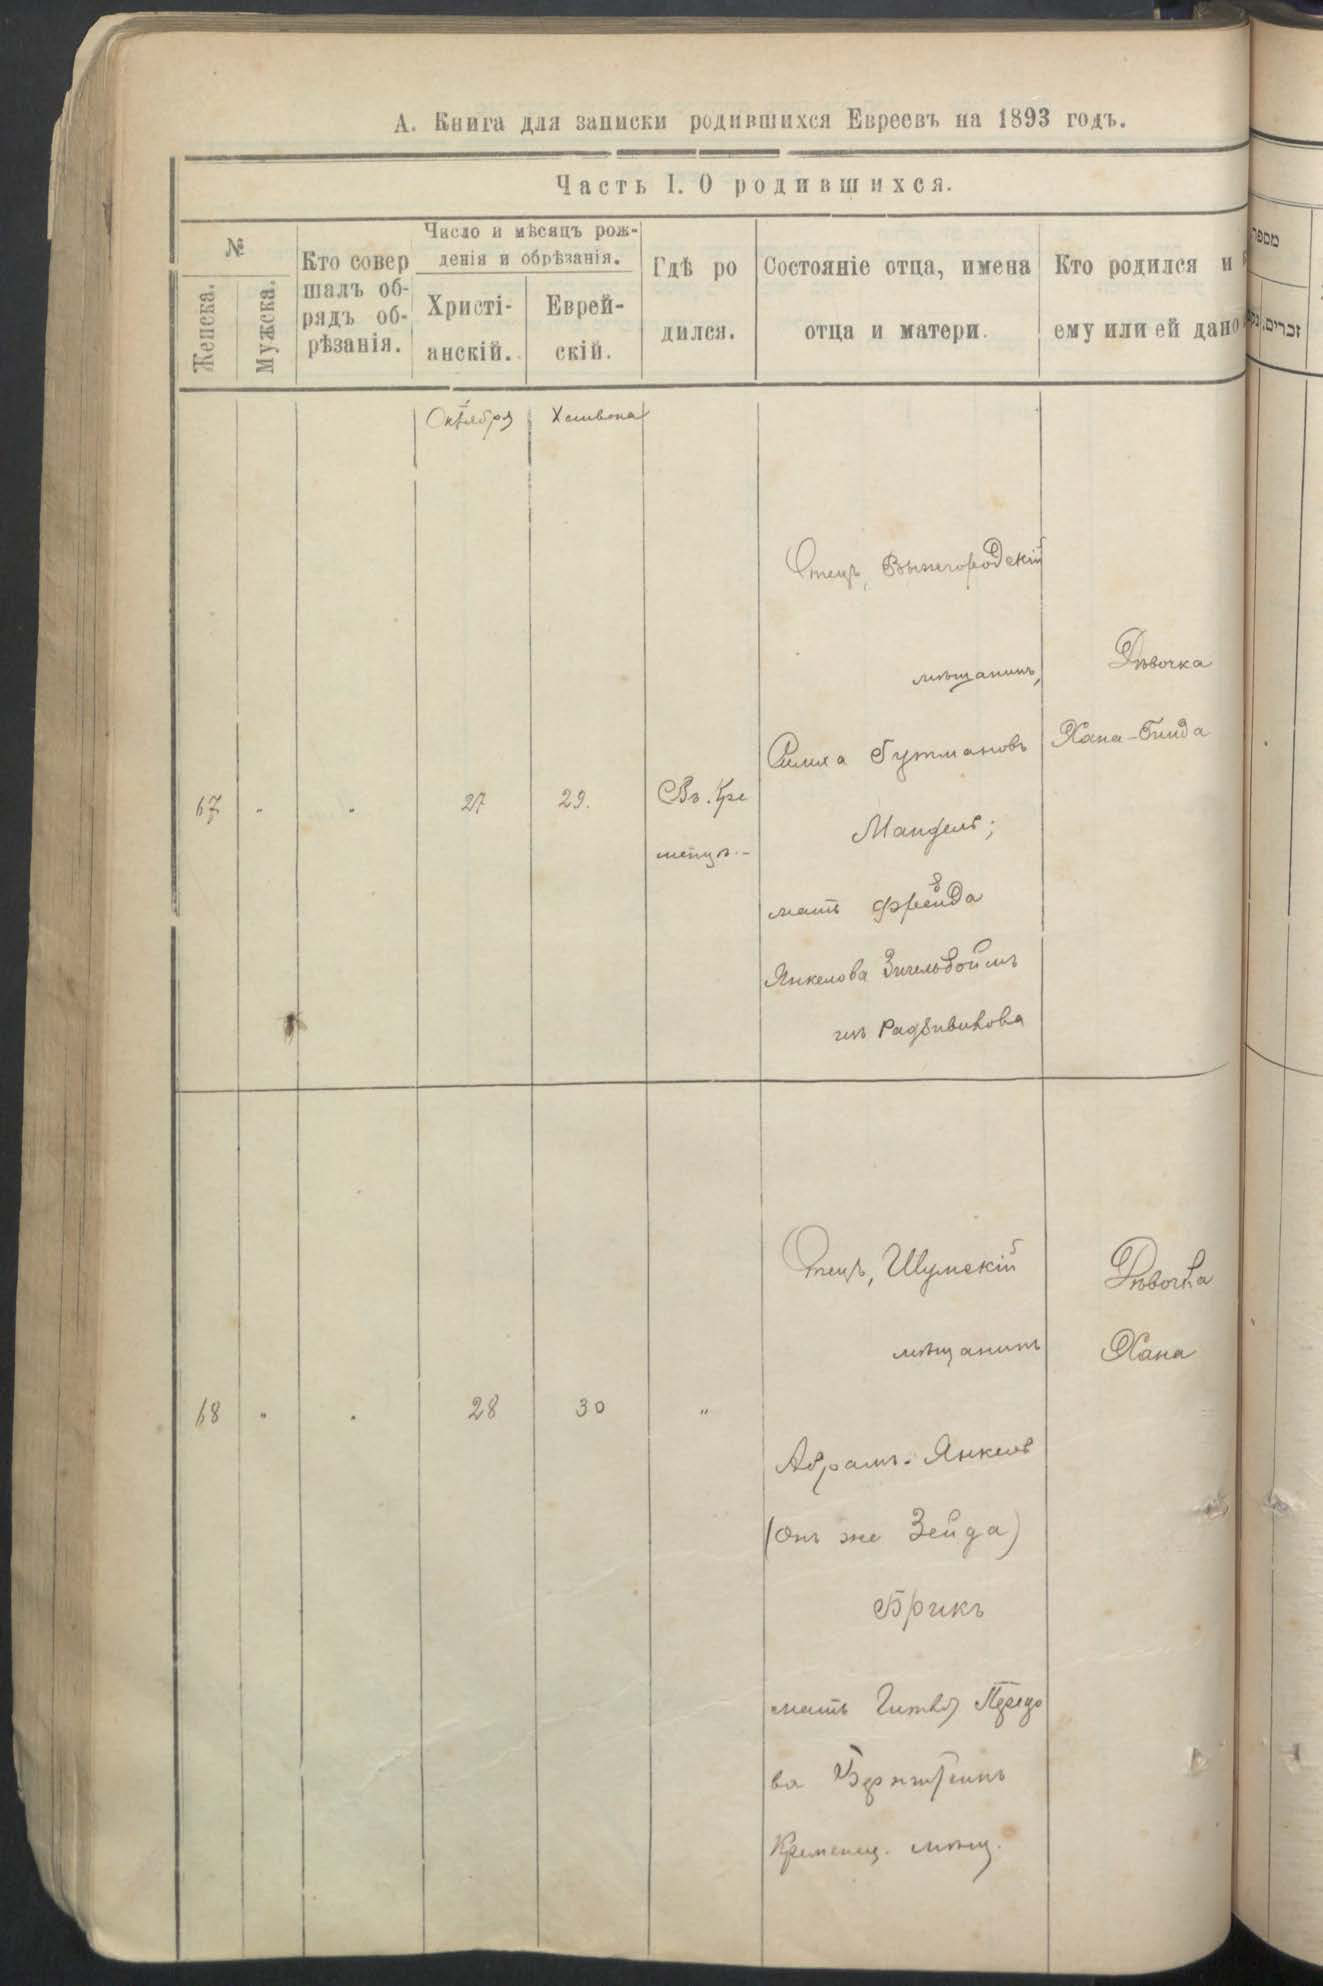 А. Книга для записки родившихся Евреевъ на 1893 годъ.
Часть I. О родившихся.
№
Женска.
Мужска.
Кто совер
шалъ об-
рядъ об-
рѣзанія.
Число и мѣсяцъ рож-
денія и обрѣзанія.
Христі-
анскій.
Еврей-
скій.
Гдѣ ро
дился.
Состояніе отца, имена
отца и матери.
Кто родился и
ему или ей дано
Октября
Хешвона
67
"
"
27
29.
Въ Кре
менцѣ.-
Отецъ, Вышегородскій
мѣщанинъ,
Симха Гутмановъ
Мандель;
мать Фрейда
Янкелова Зигельбоймъ
изъ Радзивилова
Дѣвочка
Хана-Гинда
68
"
"
28
30
"
Отецъ, Шумскій
мѣщанинъ
Абрамъ-Янкель
(онъ же Зейда)
Брикъ
мать Гитля
ва Бернштейнъ
Кременец. мѣщ.
Дѣвочка
Хана
מספר
זכרים.